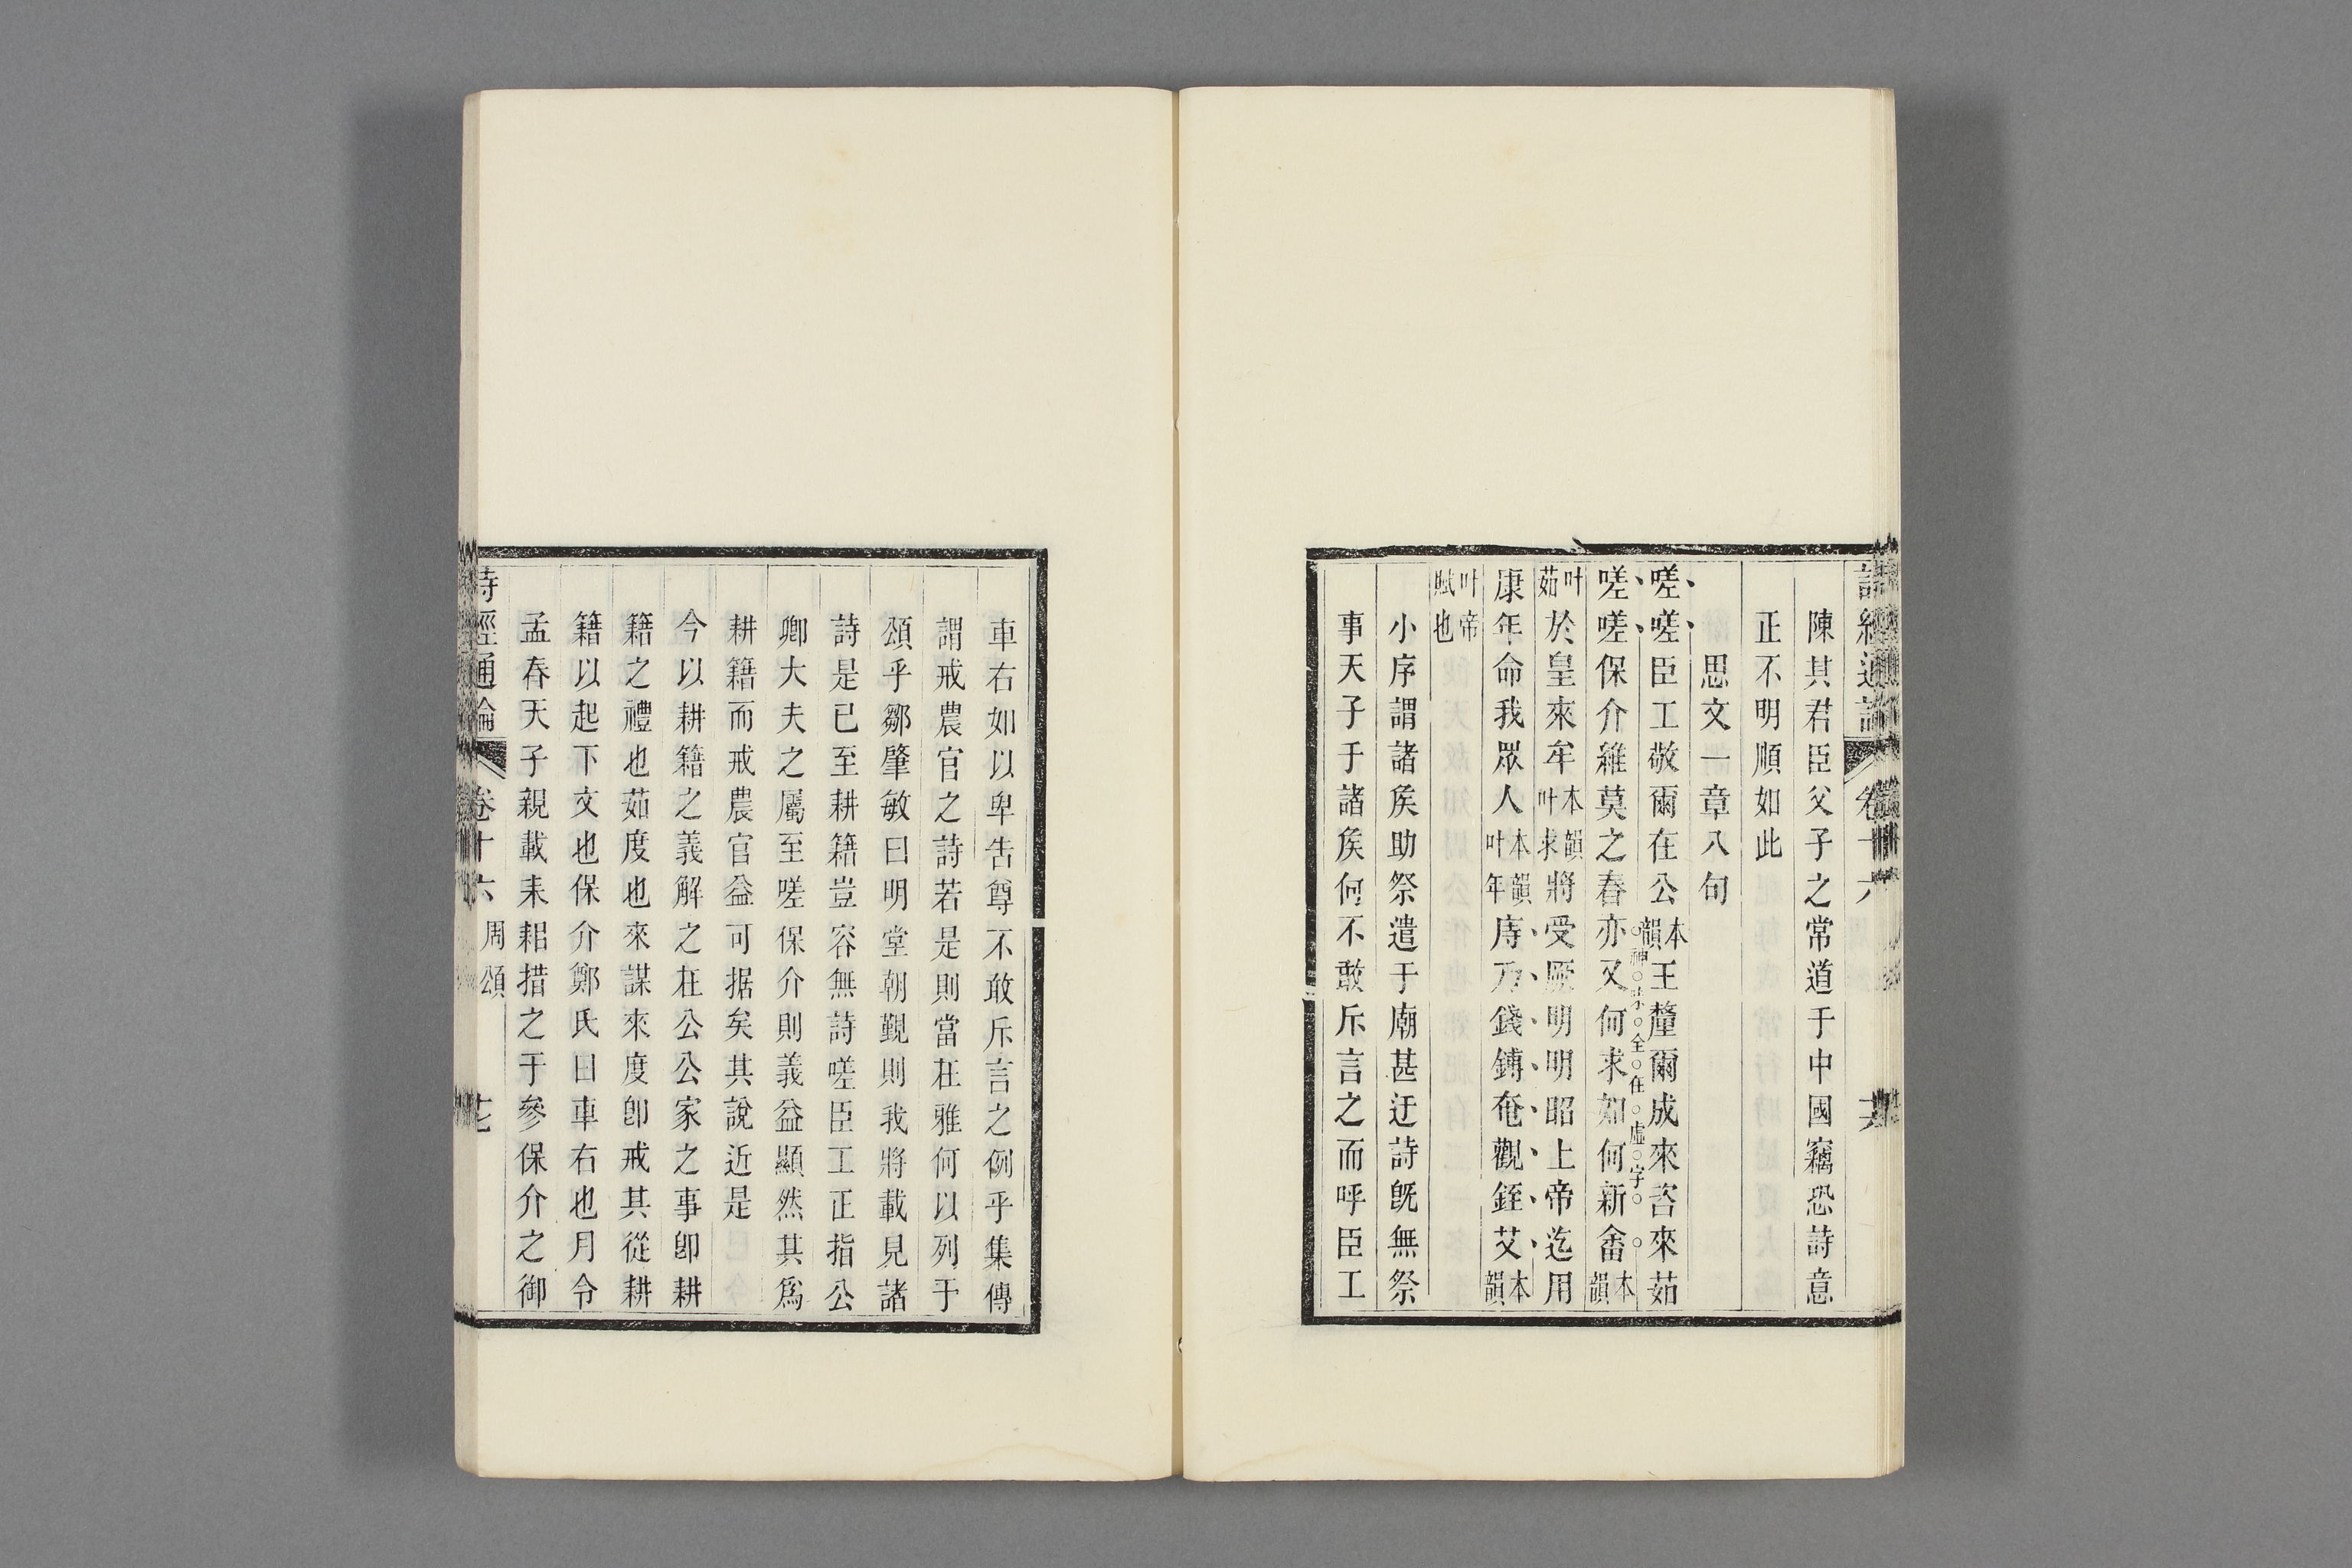 詩經通論 卷十六
陳其君臣父子之常道于中國竊恐詩意
正不明順如此
思文一章八句
嗟嗟臣工敬爾在公本韻王釐爾成來咨來茹
神味全在虛字
嗟嗟保介維莫之春亦又何求如何新畬本韻
叶茹於皇來牟本韻叶求將受厥明明昭上帝迄用
康年命我眾人本韻叶年庤乃錢鎛奄觀銍艾本韻
叶帝賦也
小序謂諸矦助祭遣于廟甚迂詩旣無祭
事天子于諸矦何不敢斥言之而呼臣工
車右如以卑告尊不敢斥言之例乎集傳
謂戒農官之詩若是則當在雅何以列于
頌乎鄒肇敏曰明堂朝覲則我將載見諸
詩是已至耕籍豈容無詩嗟臣工正指公
卿大夫之屬至嗟保介則義益顯然其爲
耕籍而戒農官益可据矣其說近是
今以耕籍之義解之在公公家之事卽耕
籍之禮也茹度也來謀來度卽戒其從耕
籍以起下文也保介鄭氏曰車右也月令
孟春天子親載耒耜措之于參保介之御
詩經通論 卷十六 周頌 七